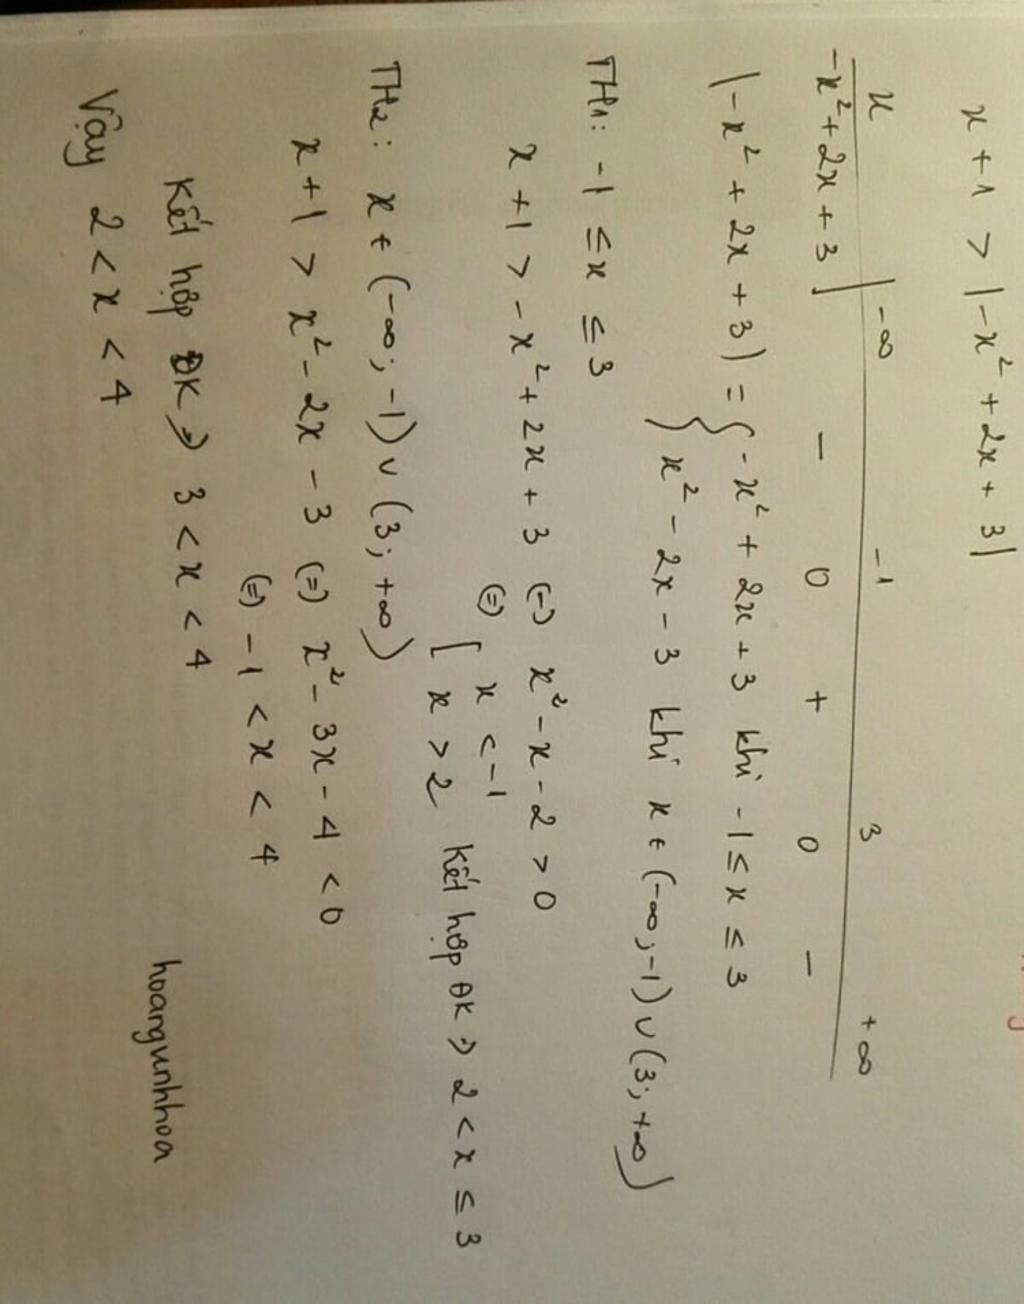 x + 1 > |-x² + 2x + 3|
x | -∞ -1 3 +∞
-x² + 2x + 3 | - 0 + 0 -
|-x² + 2x + 3| = { -x² + 2x + 3 khi -1 ≤ x ≤ 3
{ x² - 2x - 3 khi x ∈ (-∞; -1) ∪ (3; +∞)
TH1: -1 ≤ x ≤ 3
x + 1 > -x² + 2x + 3 (=) x² - x - 2 > 0
(=) [ x < -1
[ x > 2 Kết hợp ĐK => 2 < x ≤ 3
TH2: x ∈ (-∞; -1) ∪ (3; +∞)
x + 1 > x² - 2x - 3 (=) x² - 3x - 4 < 0
(=) -1 < x < 4
Kết hợp ĐK => 3 < x < 4
Vậy 2 < x < 4
hoangunhhoa